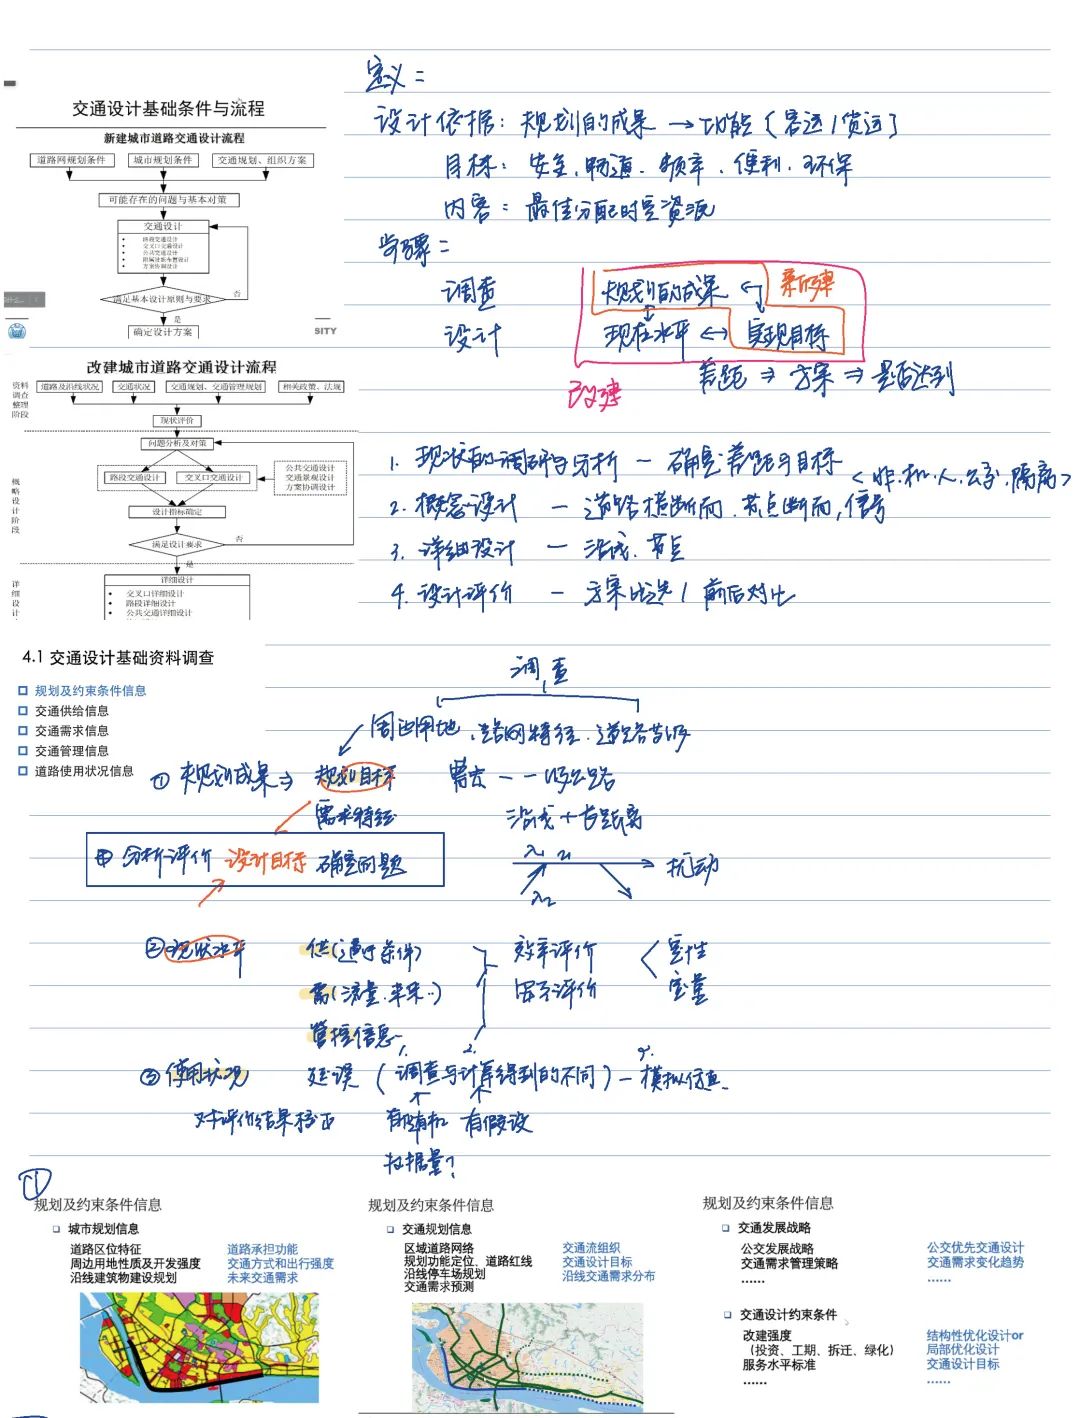 定义：
交通设计基础条件与流程
设计依据：规划的成果 → 功能（客运/货运）
新建城市道路交通设计流程
道路网规划条件 城市规划条件 交通规划、组织方案
目标：安全、畅通、效率、便利、环保
可能存在的问题与基本对策
内容：最佳分配时空资源
交通设计
路段交通设计
交叉口交通设计
公共交通设计
附属设施布置设计
方案协调设计
步骤：
调查 规划的成果 新建
满足基本设计原则与要求 否
是
设计 现在水平 实现目标
确定设计方案
SITY
改建 差距 ⇒ 方案 ⇒ 是否达到
改建城市道路交通设计流程
资料调查整理阶段
道路及沿线状况 交通状况 交通规划、交通管理规划 相关政策、法规
现状评价
概略设计阶段
问题分析及对策
路段交通设计 交叉口交通设计
公共交通设计
交通景观设计
方案协调设计
设计指标确定
满足设计要求 否
是
详细设计
详细设计
交叉口详细设计
路段详细设计
公共交通详细设计
1. 现状的调研与分析 — 确定差距与目标
<非.机.人.公交.隔离>
2. 概念设计 — 道路横断面、节点断面、信号
3. 详细设计 — 沿线、节点
4. 设计评价 — 方案比选/前后对比
4.1 交通设计基础资料调查
规划及约束条件信息
交通供给信息
交通需求信息
交通管理信息
道路使用状况信息
调查
周边用地、路网特征、道路
① 规划成果 ⇒ 规划目标 — 一级公路
需求特征 沿线+长距离
④ 分析评价 设计目标 确定问题
λ1
λ2
扰动
② 现状水平 供(通行条件) 效率评价 定性
需(流量.) 评价 定量
管控信息
1. 2.
③ 使用状况 延误（调查与计算得到的不同）— 模拟仿真
对评价结果校正 有随机 有假设
数据量?
①
规划及约束条件信息
城市规划信息
道路区位特征 道路承担功能
周边用地性质及开发强度 交通方式和出行强度
沿线建筑物建设规划 未来交通需求
规划及约束条件信息
交通规划信息
区域道路网络 交通流组织
规划功能定位、道路红线 交通设计目标
沿线停车场规划 沿线交通需求分布
交通需求预测
规划及约束条件信息
交通发展战略
公交发展战略 公交优先交通设计
交通需求管理策略 交通需求变化趋势
...... ......
交通设计约束条件
改建强度 结构性优化设计or
（投资、工期、拆迁、绿化） 局部优化设计
服务水平标准 交通设计目标
...... ......